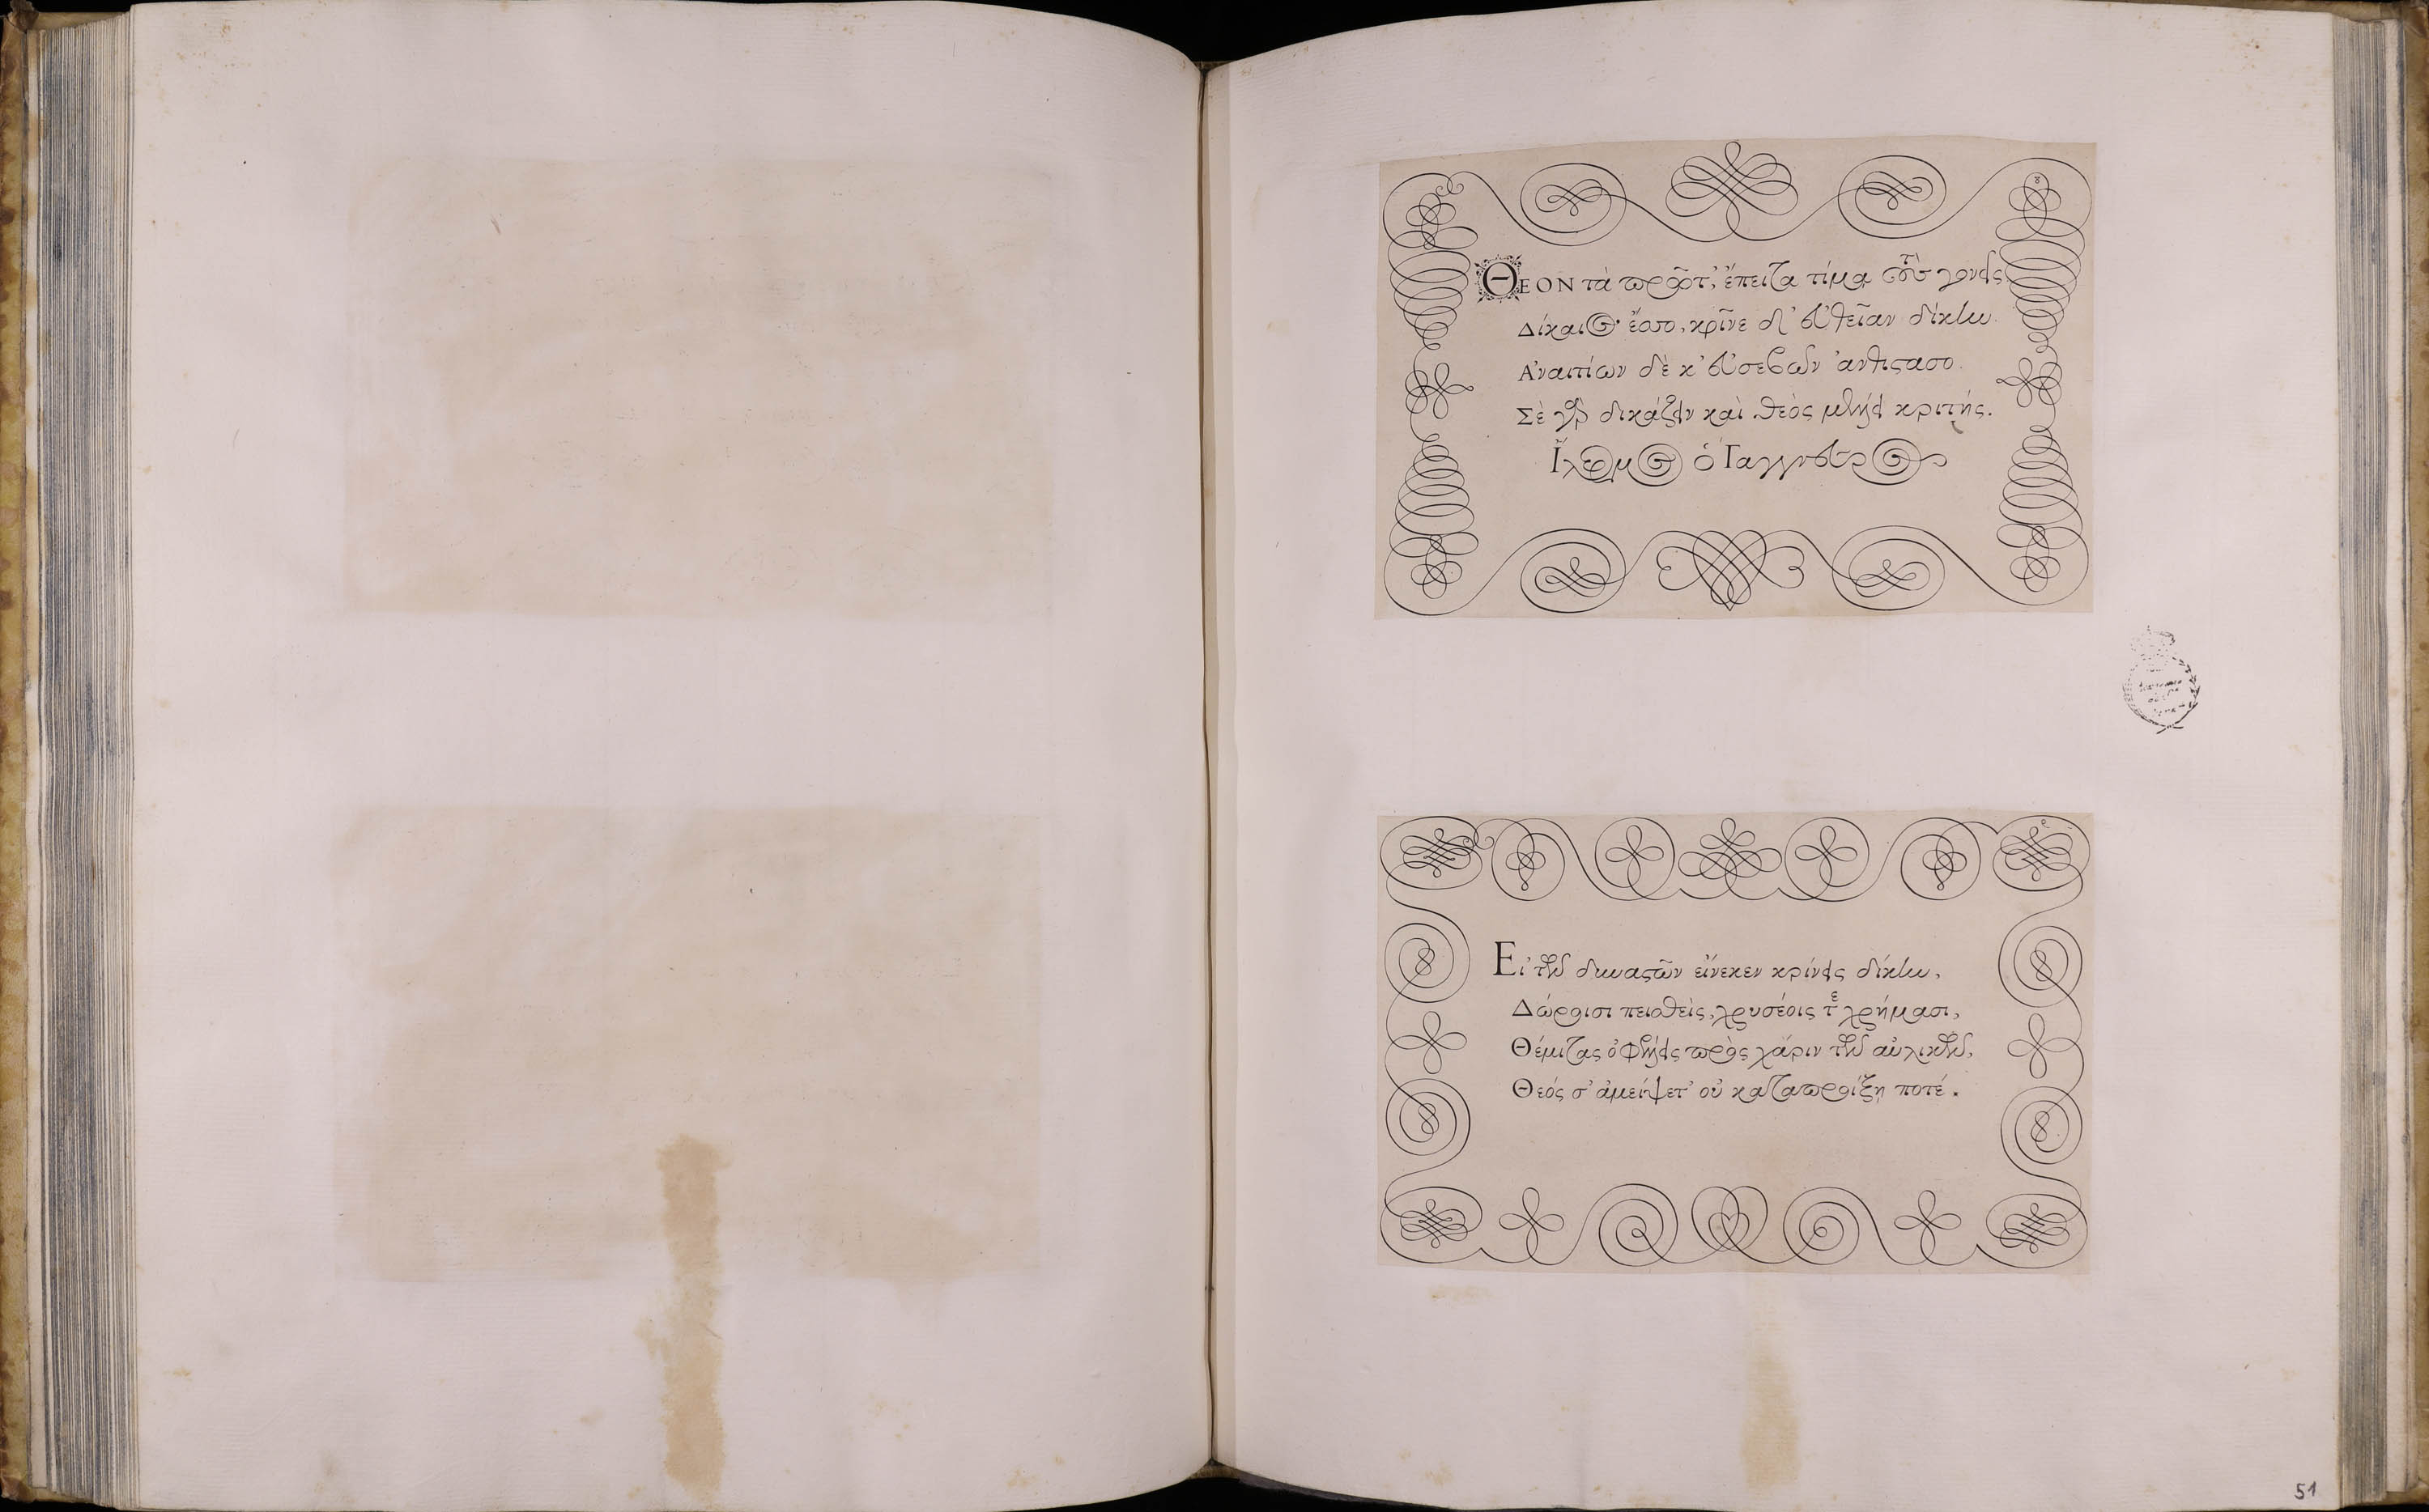 ΘΕΟΝ τὰ πρῶτ', ἔπειτα τίμα τοὺς γονεῖς
Δίκαιος ἔσο, κρῖνε δ' εὐθεῖαν δίκην.
Ἀναιτίων δὲ κ' εὐσεβῶν ἀνθίστασο.
Σὲ γὰρ δικάζειν καὶ θεὸς μένει κριτής.
ὁ
Εἰ τῶν δυναστῶν εἵνεκεν κρίνεις δίκην,
Δώροισι πεισθεὶς, χρυσέοις τε χρήμασι,
Θέμιστας πρὸς χάριν τῶν αὐλικῶν,
Θεός σ' ἀμείψετ' οὐ καταπροίξῃ ποτέ.
51